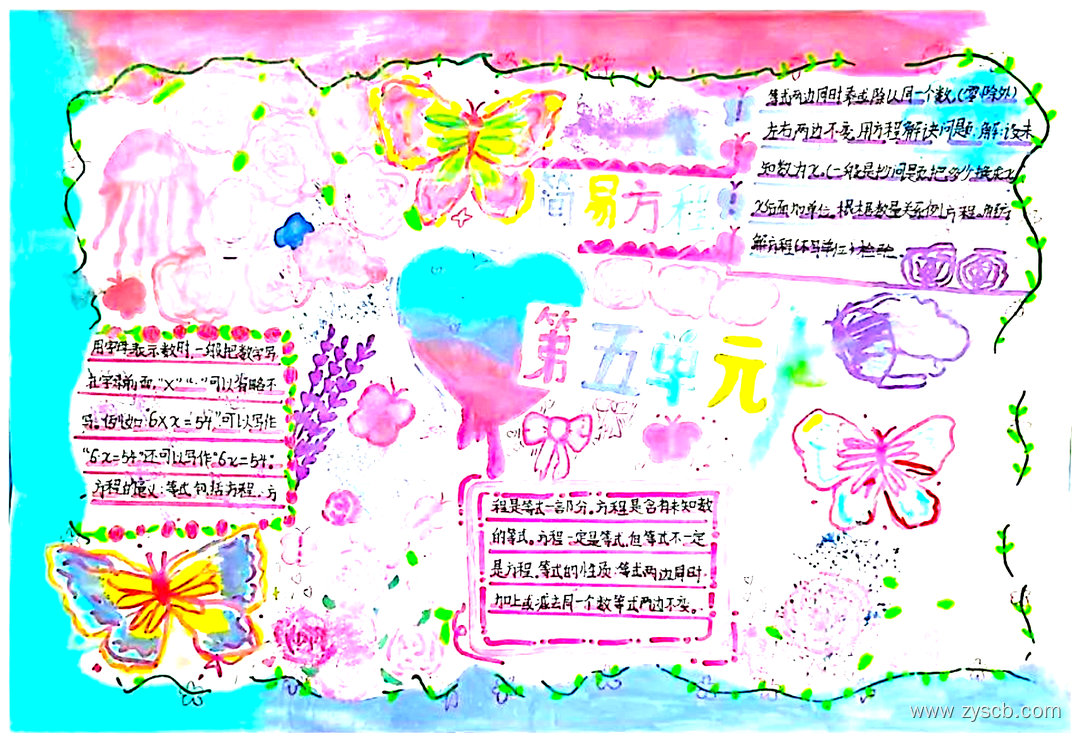 简易方程
第五单元
用字母表示数时,一般把数字写
在字母前面,"×""·"可以省略不
写。例如:"6×x=54"可以写作
"6·x=54"还可以写作"6x=54"。
方程的意义:等式包括方程,方
程是等式一部分。方程是含有未知数
的等式。方程一定是等式,但等式不一定
是方程。等式的性质:等式两边同时
加上或减去同一个数等式两边不变。
等式两边同时乘或除以同一个数,(零除外)
左右两边不变。用方程解决问题:解:设未
知数为x。(一般是抄问题把多少换成x
x后面的单位。根据数量关系列方程。
解方程 检验
www.zyscb.com